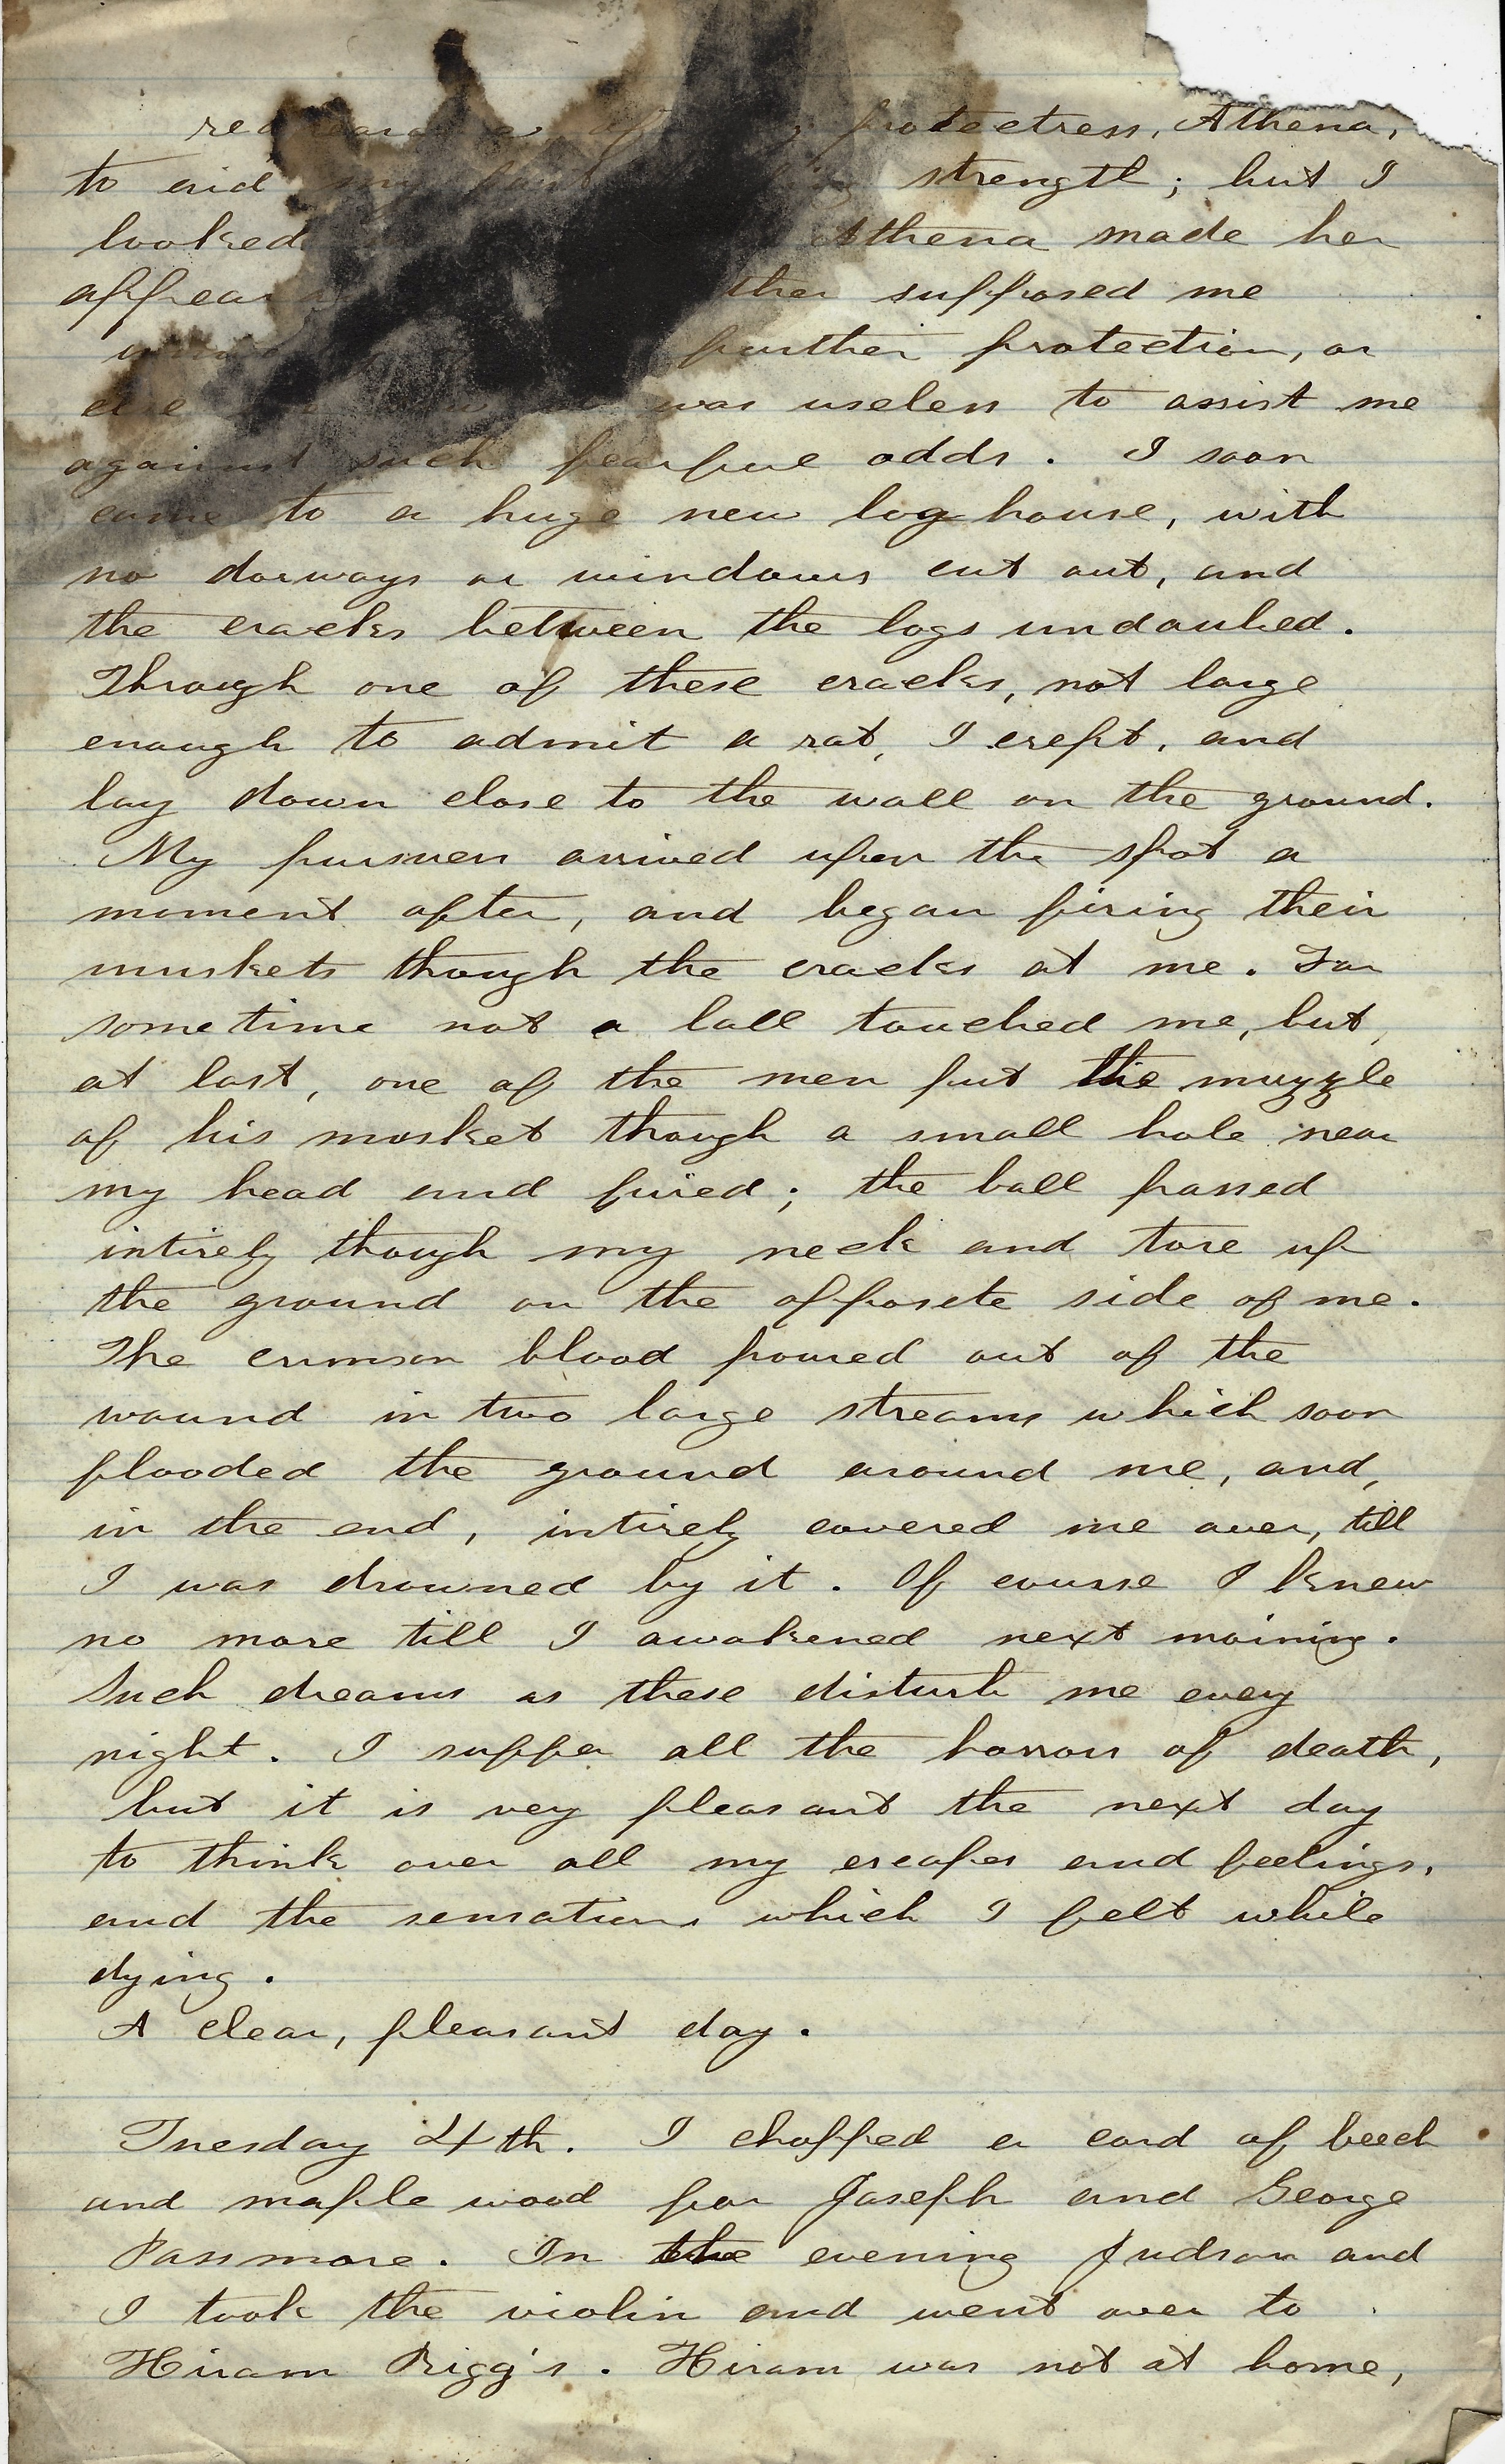 protectress, Athena,
to aid my strength; but I
looked Athena made her
appear ther supposed me
further protection, or
else was useless to assist me
against such fearful odds. I soon
came to a huge new log house, with
no dorways or windows cut out, and
the cracks between the logs undaubed.
Through one of these cracks, not large
enough to admit a rat, I crept, and
lay down close to the wall on the ground.
My pursuers arrived upon the spot a
moment after, and began firing their
muskets though the cracks at me. For
sometime not a ball touched me, but,
at last, one of the men put the muzzle
of his musket though a small hole near
my head and fired; the ball passed
intirely though my neck and tore up
the ground on the opposete side of me.
The crimson blood poured out of the
wound in two large streams which soon
flooded the ground around me, and,
in the end, intirely covered me over, till
I was drowned by it. Of course I knew
no more till I awakened next morning.
Such dreams as these disturb me every
night. I suffer all the horrors of death,
but it is very pleasant the next day
to think over all my escapes and feelings,
and the sensations which I felt while
dying.
A clear, pleasant day.
Tuesday 4th. I chopped a cord of beech
and maple wood for Joseph and George
Passmore. In the evening Judson and
I took the violin and went over to
Hiram Rigg's. Hiram was not at home,